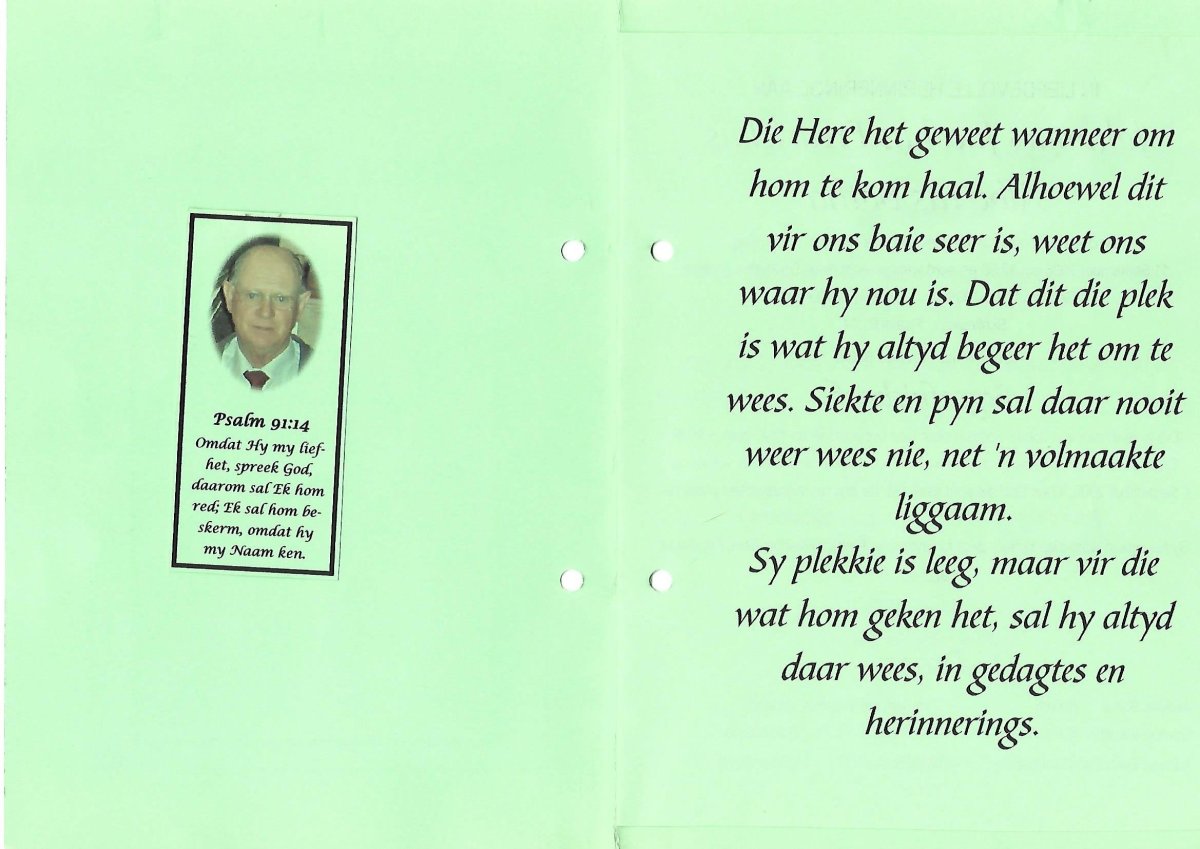 Psalm 91:14
Omdat Hy my lief-
het, spreek God,
daarom sal Ek hom
red; Ek sal hom be-
skerm, omdat hy
my Naam ken.
Die Here het geweet wanneer om
hom te kom haal. Alhoewel dit
vir ons baie seer is, weet ons
waar hy nou is. Dat dit die plek
is wat hy altyd begeer het om te
wees. Siekte en pyn sal daar nooit
weer wees nie, net 'n volmaakte
liggaam.
Sy plekkie is leeg, maar vir die
wat hom geken het, sal hy altyd
daar wees, in gedagtes en
herinnerings.